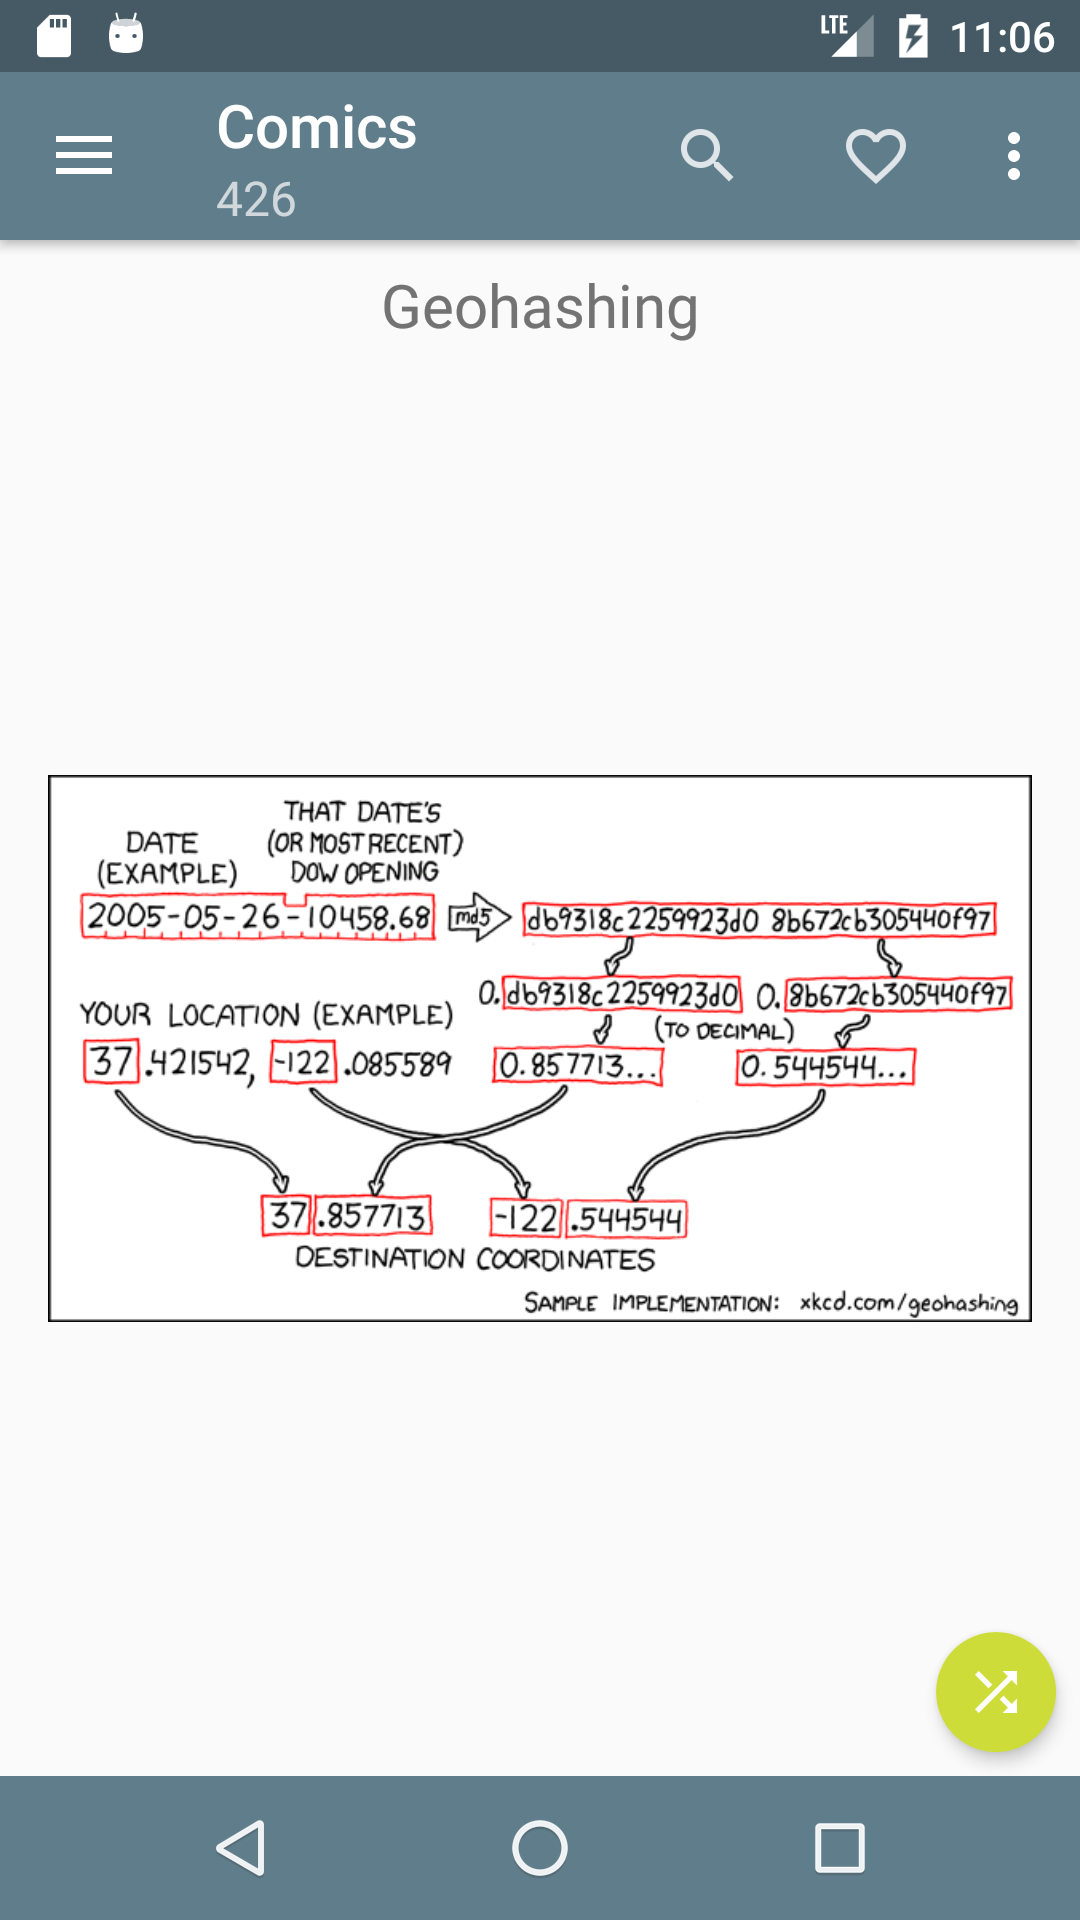 LTE 11:06
Comics
426
Geohashing
DATE
(EXAMPLE)
THAT DATE'S
(OR MOST RECENT)
DOW OPENING
2005-05-26-10458.68
md5
db9318c2259923d0 8b672cb305440f97
0.db9318c2259923d0 0.8b672cb305440f97
(TO DECIMAL)
0.857713... 0.544544...
YOUR LOCATION (EXAMPLE)
37.421542, -122.085589
37.857713 -122.544544
DESTINATION COORDINATES
SAMPLE IMPLEMENTATION: xkcd.com/geohashing